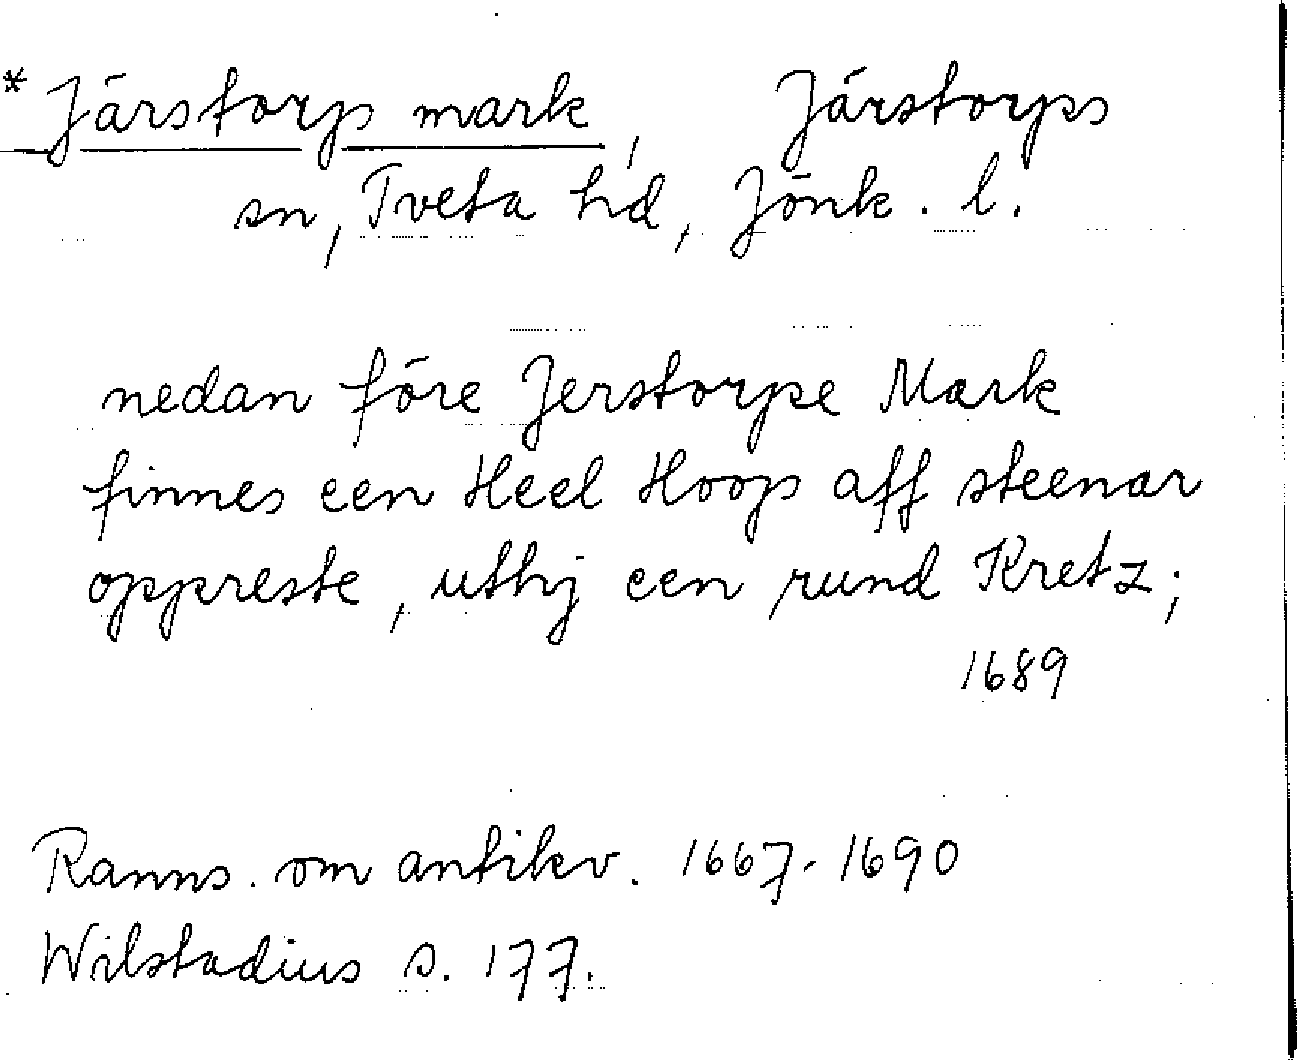 *Järstorp mark, Järstorps
sn, Tveta hd, Jönk. l.
nedan före Jerstorpe Mark
finnes een Heel Hoop aff steenar
oppreste, uthj een rund Kretz;
1689
Ranns. om antikv. 1667-1690
Wilstadius s. 177.